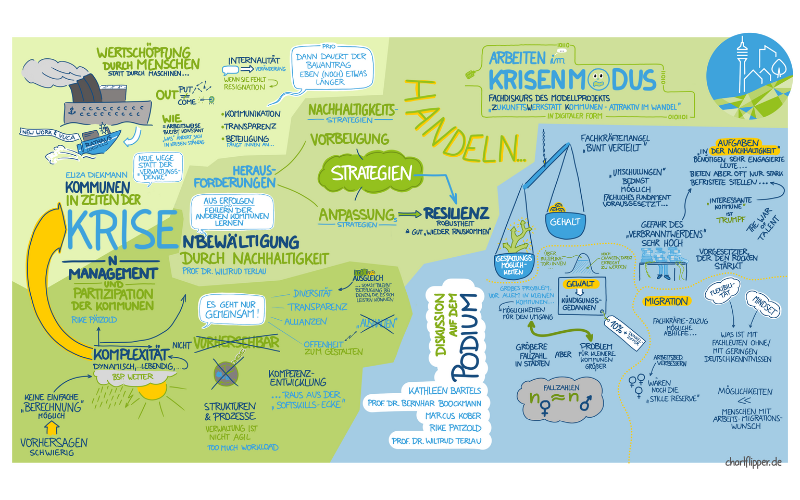 WERTSCHÖPFUNG
DURCH MENSCHEN
STATT DURCH MASCHINEN...
NEW WORK & VUCA
OUTPUT
COME
WIE
ARBEITSWEISE
BLEIBT KONSTANT
"WAS" ÄNDERT SICH
IN KRISEN STÄNDIG
INTERNALITÄT
VERÄNDERUNG
WENN SIE FEHLT
RESIGNATION
PRIO
DANN DAUERT DER
BAUANTRAG
EBEN (NOCH) ETWAS
LÄNGER
• KOMMUNIKATION
• TRANSPARENZ
• BETEILIGUNG
FÄNGT INNEN AN...
NEUE WEGE
STATT DER
"VERWALTUNGS-
DENKE"
ELIZA DIECKMANN
KOMMUNEN
IN ZEITEN DER
KRISE
N
MANAGEMENT
UND
PARTIZIPATION
DER KOMMUNEN
RIKE PÄTZOLD
NBEWÄLTIGUNG
DURCH NACHHALTIGKEIT
PROF DR. WILTRUD TERLAU
HERAUS-
FORDERUNGEN
AUS ERFOLGEN
FEHLERN DER
ANDEREN KOMMUNEN
LERNEN
NACHHALTIGKEITS-
STRATEGIEN
VORBEUGUNG
STRATEGIEN
ANPASSUNGS-
STRATEGIEN
RESILIENZ
ROBUSTHEIT
& GUT "WIEDER RAUSKOMMEN"
HANDELN...
ARBEITEN im
KRISENMODUS
FACHDISKURS DES MODELLPROJEKTS
"ZUKUNFTSWERKSTATT KOMMUNEN - ATTRAKTIV IM WANDEL"
IN DIGITALER FORM
KOMPLEXITÄT
DYNAMISCH, LEBENDIG,...
BSP WETTER
NICHT
VORHERSEHBAR
KEINE EINFACHE
"BERECHNUNG"
MÖGLICH
VORHERSAGEN
SCHWIERIG
ES GEHT NUR
GEMEINSAM!
DIVERSITÄT
TRANSPARENZ
ALLIANZEN
OFFENHEIT
ZUM GESTALTEN
AUSGLEICH
KOMPETENZ-
ENTWICKLUNG
...RAUS AUS DER
"SOFTSKILLS-ECKE"
STRUKTUREN
& PROZESSE
VERWALTUNG IST
NICHT AGIL
TOO MUCH WORKLOAD
DISKUSSION
AUF DEM
PODIUM
KATHLEEN BARTELS
PROF DR. BERNHAR BOOCKMANN
MARCUS KOBER
RIKE PÄTZOLD
PROF. DR. WILTRUD TERLAU
FACHKRÄFTEMANGEL
"BUNT VERTEILT"
"UMSCHULUNGEN"
BEDINGT
MÖGLICH
FACHLICHES FUNDAMENT
VORAUSGESETZT...
AUFGABEN
IN DER NACHHALTIGKEIT
BENÖTIGEN SEHR ENGAGIERTE
LEUTE...
BIETEN ABER OFT NUR STARK
BEFRISTETE STELLEN...
"INTERESSANTE
KOMMUNE"
IST
TRUMPF
THE WAR
OF
TALENT
GEHALT
GESTALTUNGS
MÖGLICH-
KEITEN
GEFAHR DES
"VERBRANNTWERDENS"
SEHR HOCH
VORGESETZTER,
DER DEN RÜCKEN
STÄRKT
GEWALT
KÜNDIGUNGS-
GEDANKEN
GROßES PROBLEM.
VOR ALLEM IN KLEINEN
KOMMUNEN...
MÖGLICHKEITEN
FÜR DEN UMGANG
GRÖßERE
FALLZAHL
IN STÄDTEN
ABER
PROBLEM
FÜR KLEINERE
KOMMUNEN
GRÖßER
FALLZAHLEN
n♀ ≈ n♂
MIGRATION
FLEXIBILI-
TÄT
MINDSET
FACHKRÄFTE-ZUZUG
MÖGLICHE
ABHILFE...
WAS IST MIT
FACHLEUTEN OHNE/
MIT GERINGEN
DEUTSCHKENNTNISSEN
ARBEITSZEIT
VERBESSERN
WÄREN
NOCH DIE
"STILLE RESERVE"
MÖGLICHKEITEN
<<
MENSCHEN MIT
ARBEITS-MIGRATIONS-
WUNSCH
chartflipper.de